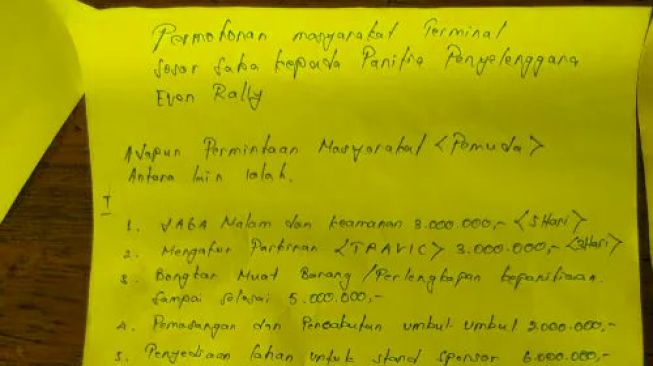 Permohonan masyarakat Terminal
Sosor Saba kepada Panitia Penyelenggara
Even Rally
Adapun Permintaan Masyarakat <Pemuda>
Antara lain ialah.
I
1. JAGA Malam dan keamanan 3.000.000,- <3Hari>
2. Mengatur Parkiran <TRAVIC> 3.000.000,- <3Hari>
3. Bongkar Muat Barang / Perlengkapan kepanitiaan.
Sampai selesai 5.000.000,-
4. Pemasangan dan Pencabutan umbul-umbul 2.000.000,-
5. Penyediaan lahan untuk stand sponsor 6.000.000,-